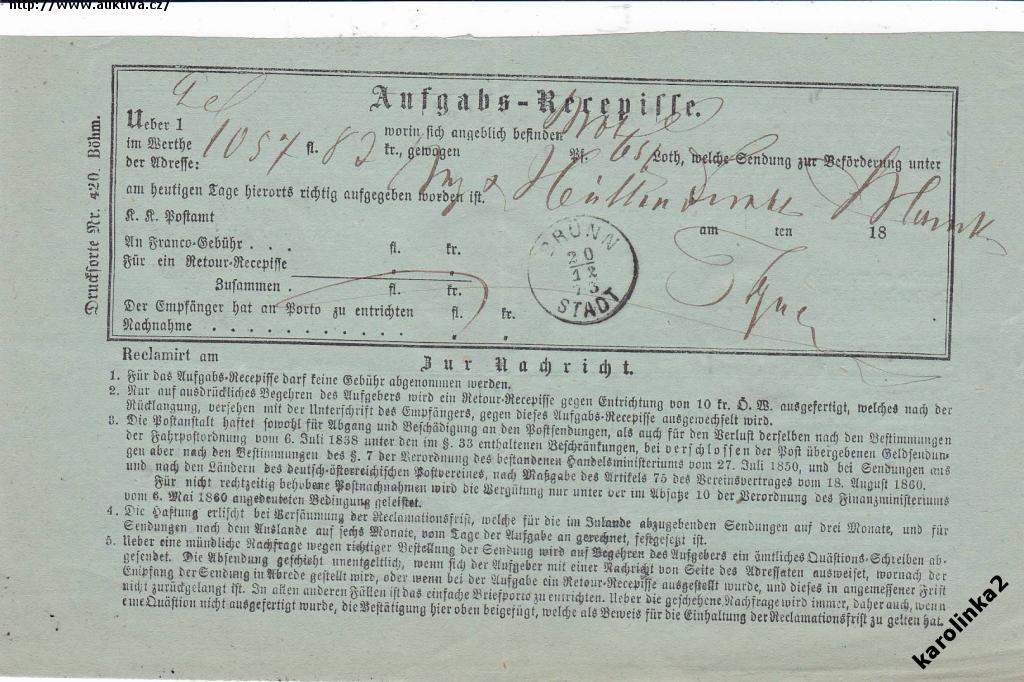 http://www.auktiva.cz/
Drucksorte Nr. 420. Böhm.
Aufgabs-Recepisse.
Ueber 1
im Werthe 1057 fl. 82 kr., gewogen Pf. Loth, welche Sendung zur Beförderung unter
worin sich angeblich befinden
der Adresse:
am heutigen Tage hierorts richtig aufgegeben worden ist.
K. K. Postamt am ten 18
An Franco-Gebühr . . . fl. kr.
Für ein Retour-Recepisse
Zusammen . fl. kr.
Der Empfänger hat an Porto zu entrichten fl. kr.
Nachnahme . . . . . . . . . . . . .
BRÜNN
20
12
73
STADT
Reclamirt am
Zur Nachricht.
1. Für das Aufgabs-Recepisse darf keine Gebühr abgenommen werden.
2. Nur auf ausdrückliches Begehren des Aufgebers wird ein Retour-Recepisse gegen Entrichtung von 10 kr. Ö. W. ausgefertigt, welches nach der
Rücklangung, versehen mit der Unterschrift des Empfängers, gegen dieses Aufgabs-Recepisse ausgewechselt wird.
3. Die Postanstalt haftet sowohl für Abgang und Beschädigung an den Postsendungen, als auch für den Verlust derselben nach den Bestimmungen
der Fahrpostordnung vom 6. Juli 1838 unter den im §. 33 enthaltenen Beschränkungen, bei verschlossen der Post übergebenen Geldsendun-
gen aber nach den Bestimmungen des §. 7 der Verordnung des bestandenen Handelsministeriums vom 27. Juli 1850, und bei Sendungen aus
und nach den Ländern des deutsch-österreichischen Postvereines, nach Maßgabe des Artikels 75 des Vereinsvertrages vom 18. August 1860.
Für nicht rechtzeitig behobene Postnachnahmen wird die Vergütung nur unter der im Absatze 10 der Verordnung des Finanzministeriums
vom 6. Mai 1860 angedeuteten Bedingung geleistet.
4. Die Haftung erlischt bei Versäumung der Reclamationsfrist, welche für die im Inlande abzugebenden Sendungen auf drei Monate, und für
Sendungen nach dem Auslande auf sechs Monate, vom Tage der Aufgabe an gerechnet, festgesetzt ist.
5. Ueber eine mündliche Nachfrage wegen richtiger Bestellung der Sendung wird auf Begehren des Aufgebers ein ämtliches Quästions-Schreiben ab-
gesendet. Die Absendung geschieht unentgeltlich, wenn sich der Aufgeber mit einer Nachricht von Seite des Adressaten ausweiset, wornach der
Empfang der Sendung in Abrede gestellt wird, oder wenn bei der Aufgabe ein Retour-Recepisse ausgestellt wurde, und dieses in angemessener Frist
nicht zurückgelangt ist. In allen anderen Fällen ist das einfache Briefporto zu entrichten. Ueber die geschehene Nachfrage wird immer, daher auch, wenn
eine Quästion nicht ausgefertigt wurde, die Bestätigung hier oben beigefügt, welche als Beweis für die Einhaltung der Reclamationsfrist zu gelten hat.
karolinka2